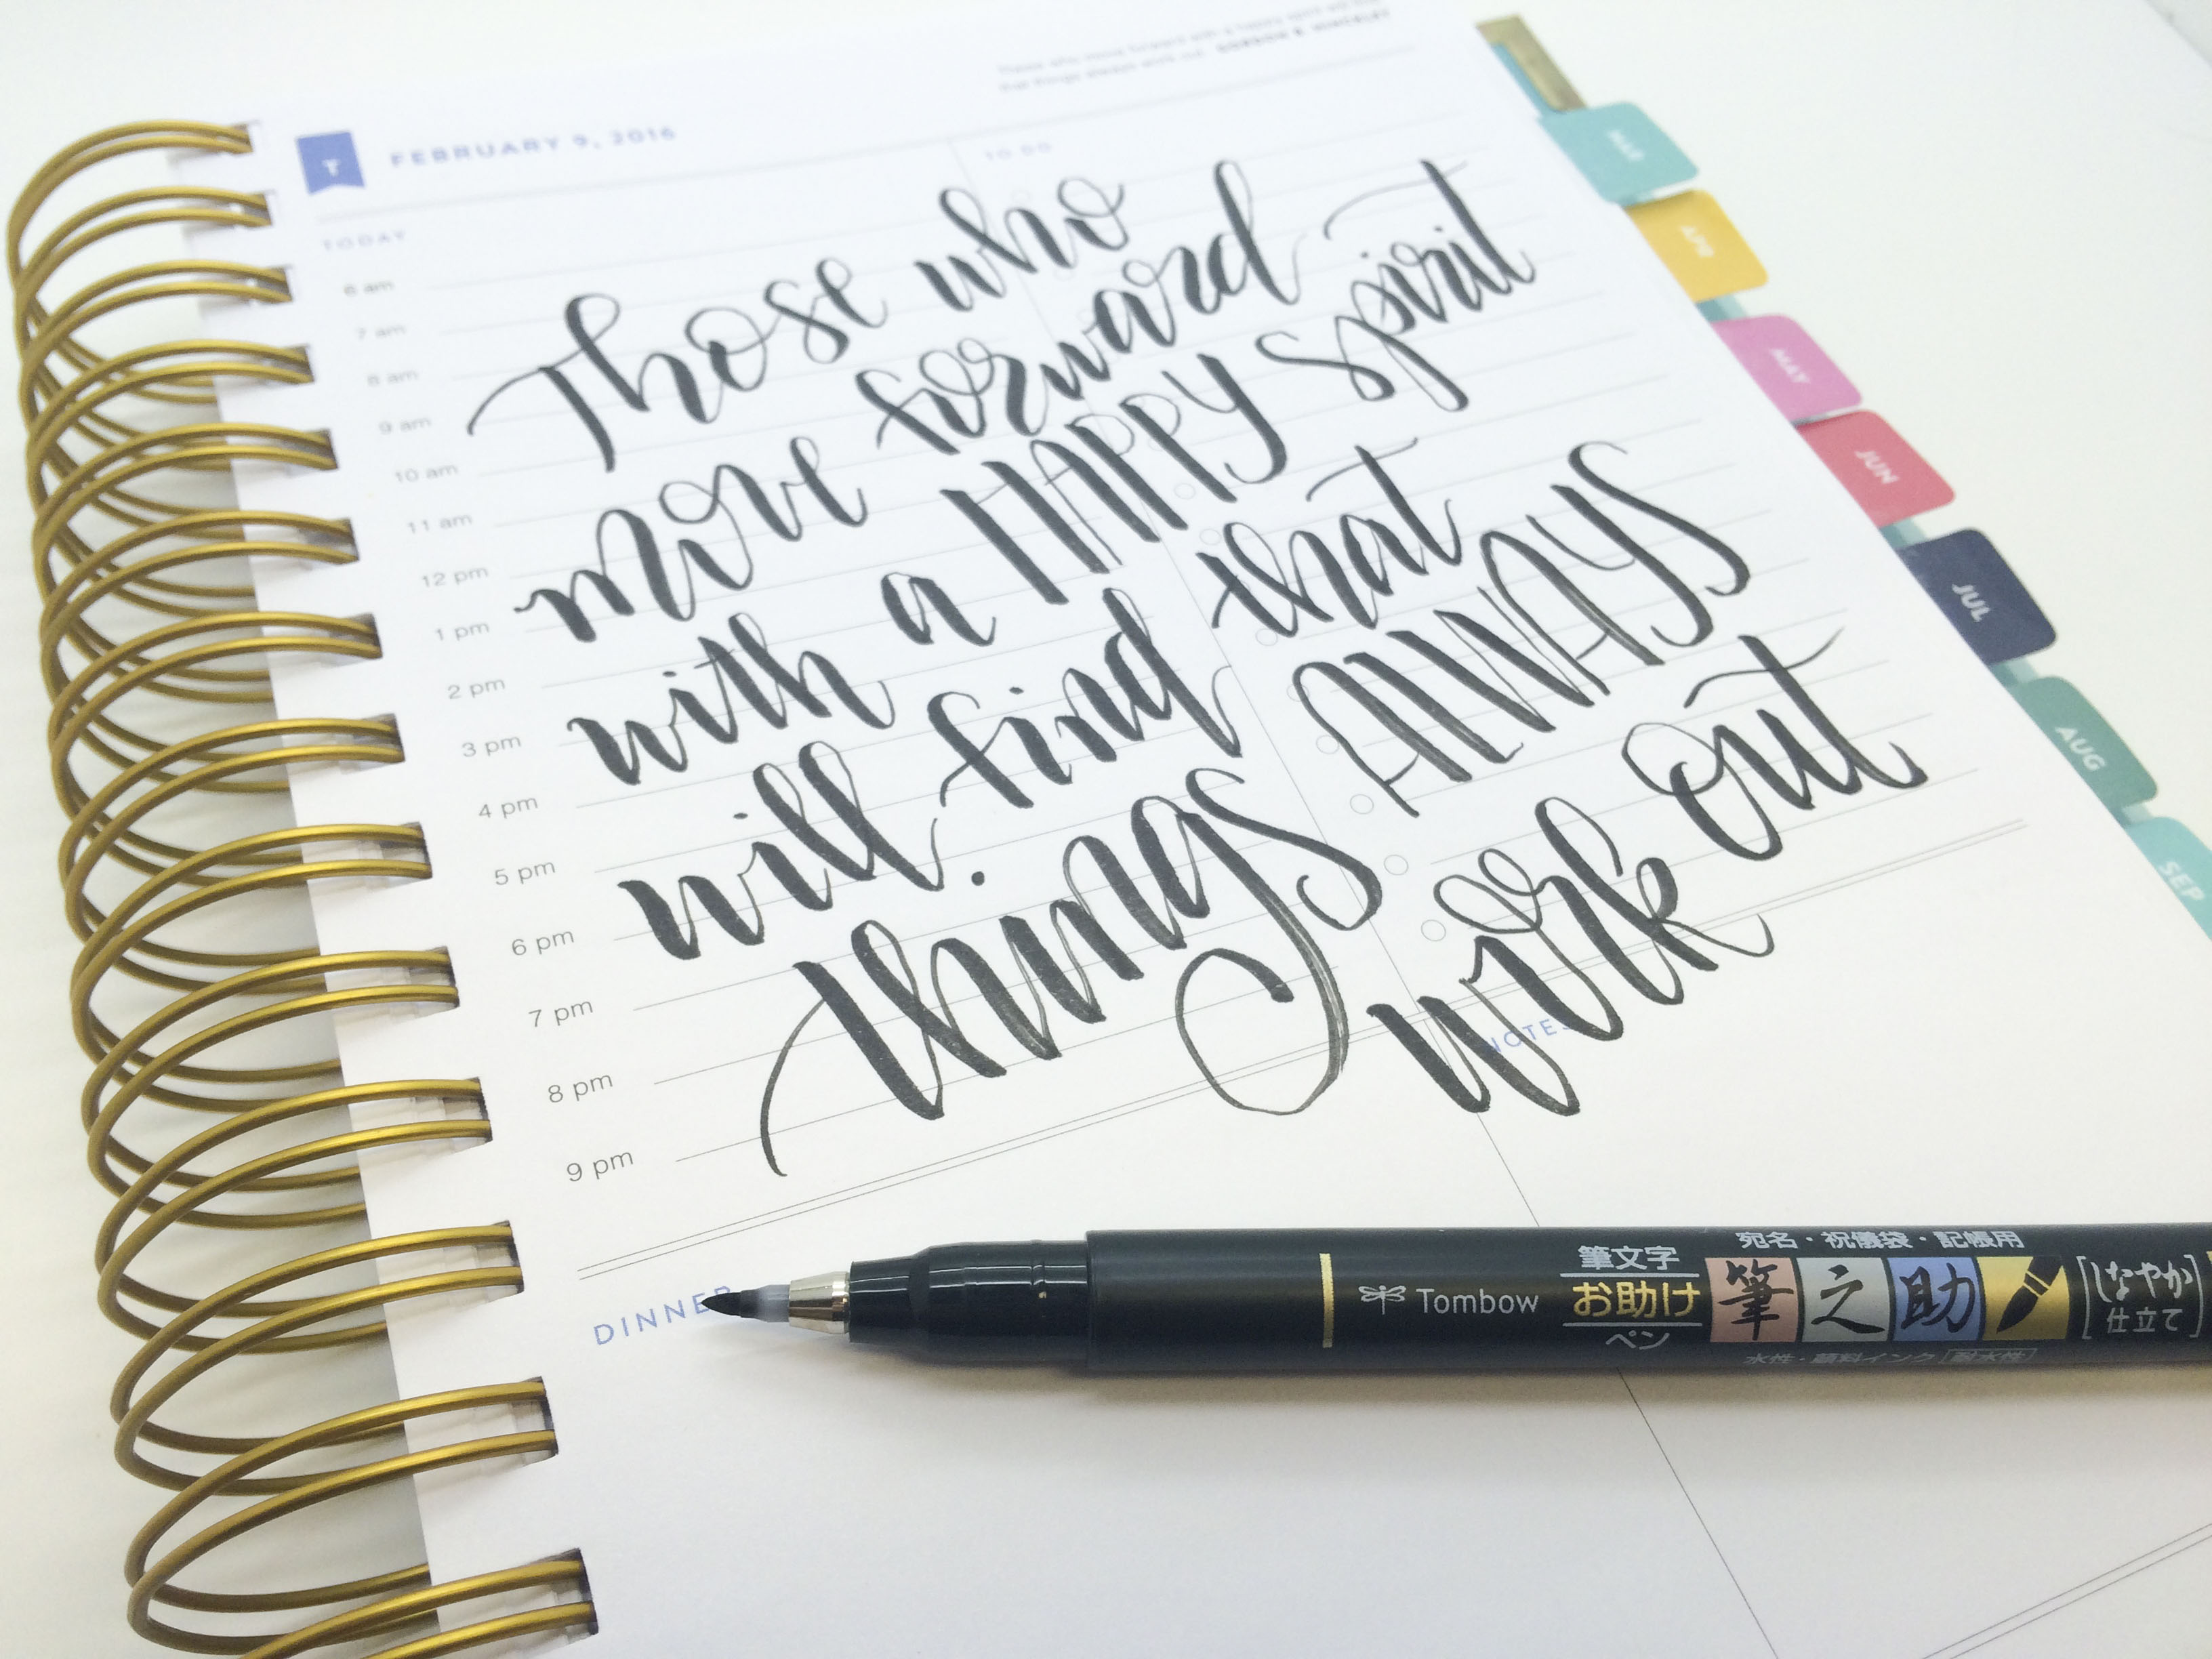 Those who move forward with a happy spirit will find
that things always work out. GORDON B. HINCKLEY
T
FEBRUARY 9, 2016
TODAY
TO DO
6 am
7 am
8 am
9 am
10 am
11 am
12 pm
1 pm
2 pm
3 pm
4 pm
5 pm
6 pm
7 pm
8 pm
9 pm
Those who
move forward
with a HAPPY spirit
will find that
things ALWAYS
work out
NOTES
DINNER
MAR
APR
MAY
JUN
JUL
AUG
SEP
Tombow
筆文字
お助け
ペン
宛名・祝儀袋・記帳用
筆之助
しなやか
仕立て
水性・顔料インク 耐水性